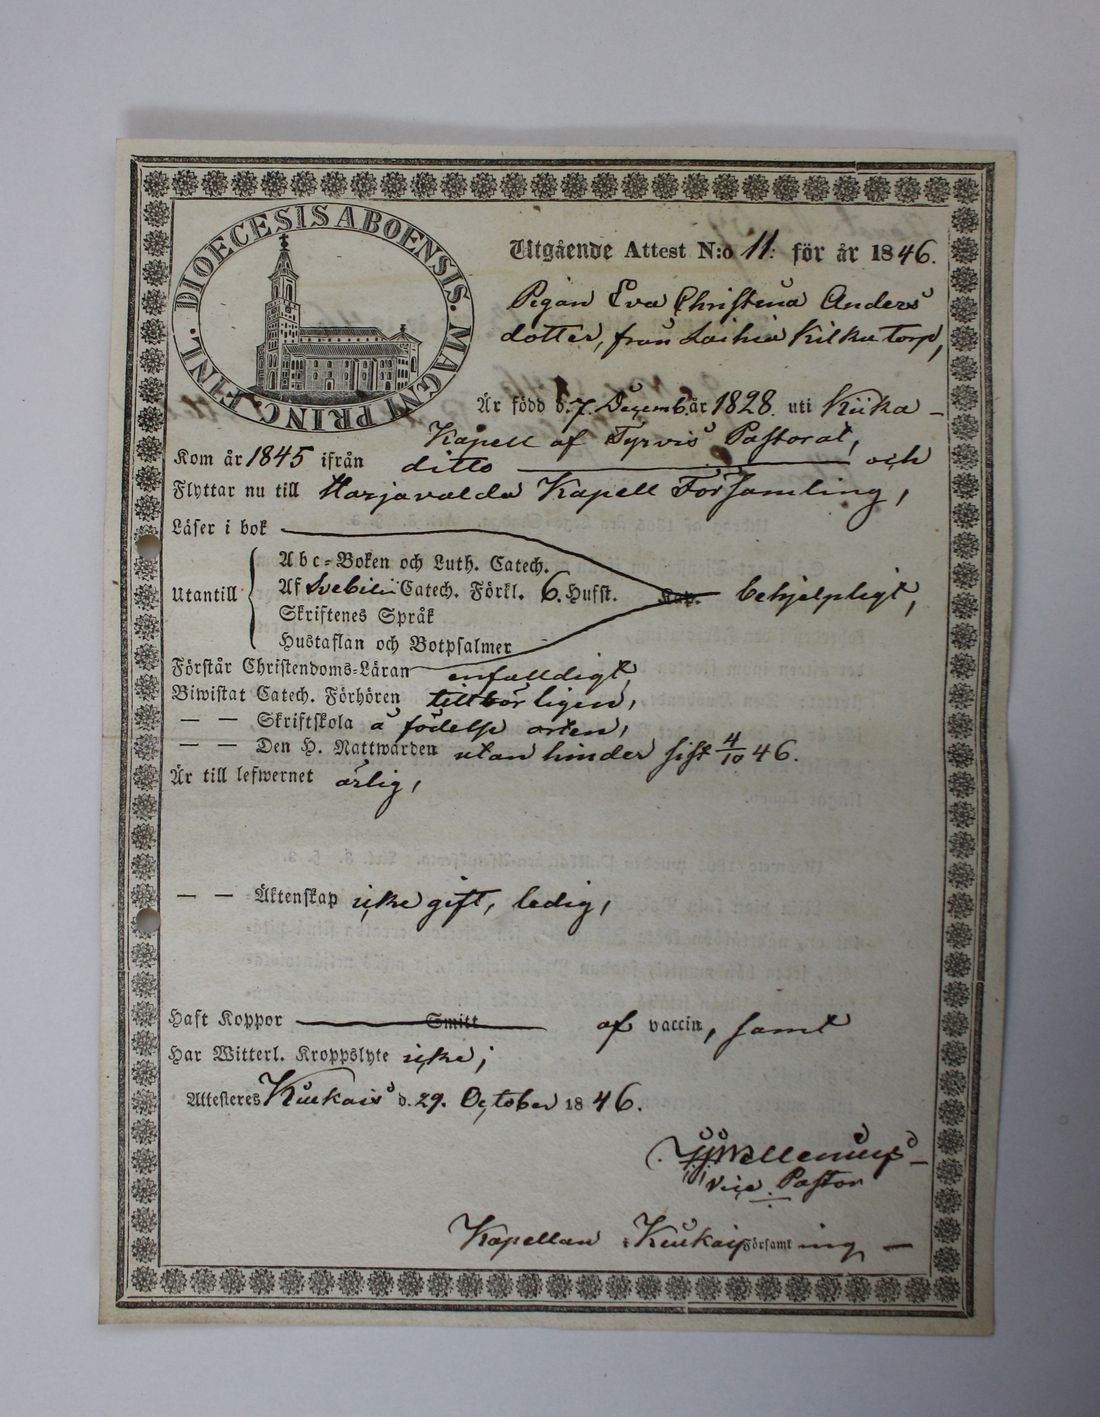 DIOECESIS ABOENSIS. MAGNI PRINC. FINL.
Utgående Attest N:o 11: för år 1846.
Pigan Eva Christina Anders
dotter, från Laihia Kilku torp,
Är född d. 7. Decemb. år 1828. uti Kiika-
Kapell af Tyrvis Pastorat,
Kom år 1845 ifrån ditto och
Flyttar nu till Harjavalda Kapell Församling,
Läser i bok
Utantill
Abc-Boken och Luth. Catech.
Af Svebilii Catech. Förkl. 6. Hufst. Kap. behjelpligt,
Skriftenes Språk
Hustaflan och Botpsalmer
Förstår Christendoms-Läran enfalldigt,
Biwistat Catech. Förhören tillbörligen,
— — Skriftskola å födelse orten,
— — Den H. Nattwarden utan hinder sist 4/10 46.
Är till lefwernet ärlig,
— — Äktenskap icke gift, ledig,
Haft Koppor Smitt af vaccin, samt
Har Witterl. Kroppslyte icke;
Attesteres Kiukais d. 29. October 1846.
Vice Pastor
Kapellan i Kiukais Församling —